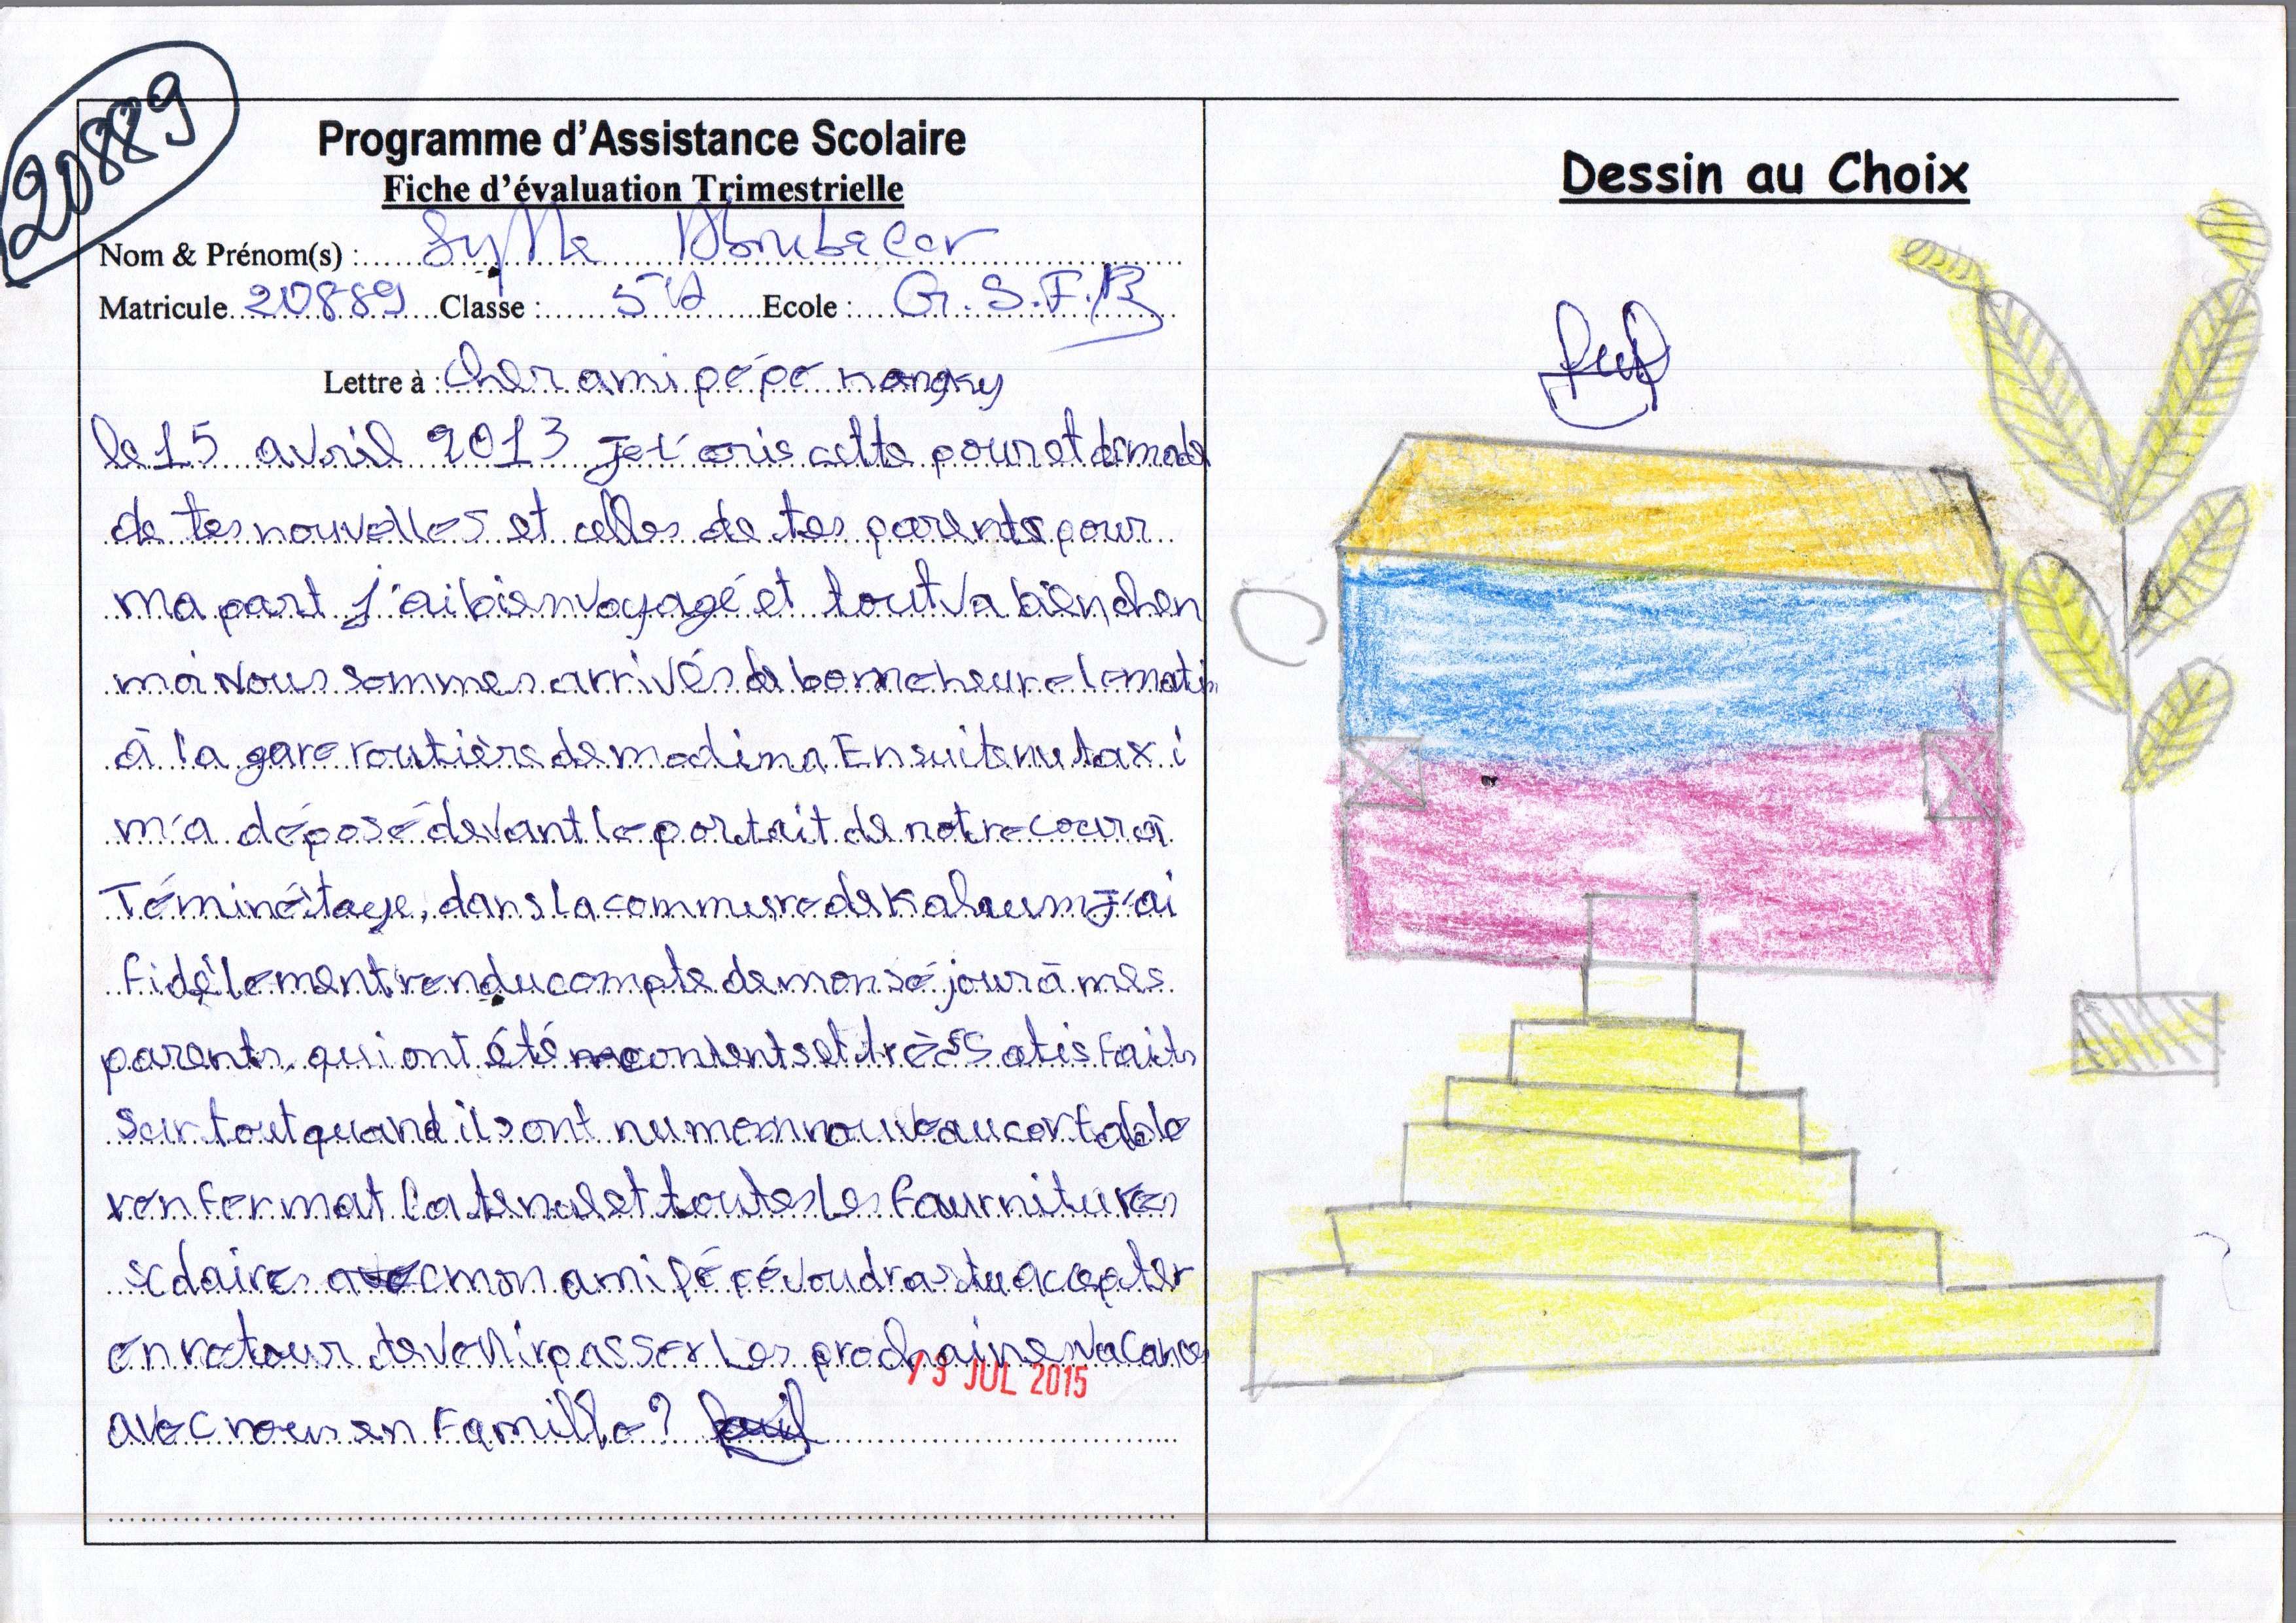 20889
Programme d'Assistance Scolaire
Fiche d'évaluation Trimestrielle
Nom & Prénom(s) : Sylla Aboubacar
Matricule 20889 Classe : 5è Ecole : G.S.F.B
Lettre à : cher ami pépé kangky
le 15 avril 2013 je t'ecris cette pour et demade
de tes nouvelles et celles de tes parents pour
ma part j'ai bien voyagé et tout va bien chen
moi Nous sommes arrivés de bonne heure le matin
à la gare routière de madina Ensuite nu taxi
m'a déposé devant le portait de notre cour à
Téminétaye, dans la commune de Kaloum J'ai
fidèlement rendu compte de mon séjour à mes
parents qui ont été contents et très satisfaits
surtout quand il sont nu mon nouveau cartable
renfermat la tenue et toutes les fournitures
scolaires avec mon ami pépé voudras tu accepter
en retour de venir passer Les prochaines vacances
13 JUL 2015
avec nous en famille ?
Dessin au Choix